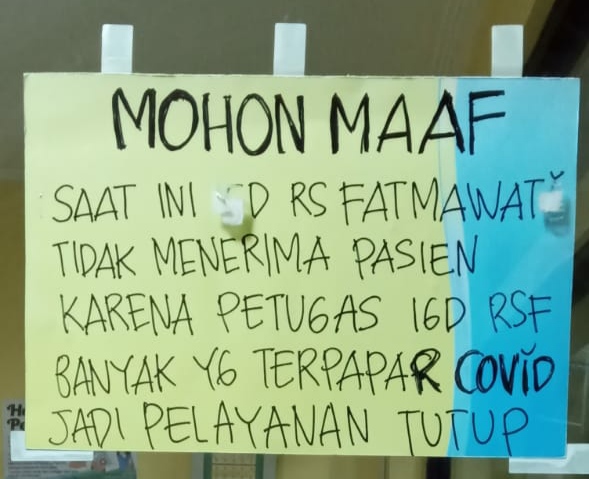 MOHON MAAF
SAAT INI IGD RS FATMAWATI
TIDAK MENERIMA PASIEN
KARENA PETUGAS IGD RSF
BANYAK YG TERPAPAR COVID
JADI PELAYANAN TUTUP